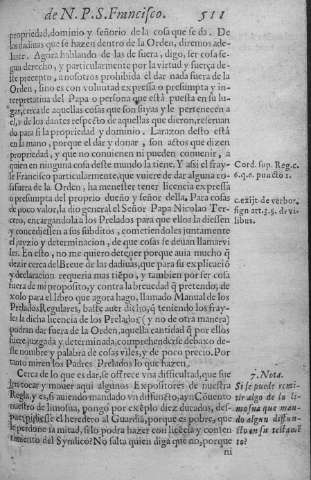 de N. P. S. Francisco. 511
propriedad, dominio y señorio de la cosa que se dà. De
las dadiuas que se hazen dentro de la Orden, diremos ade-
lante. Agora hablando de las de fuera, digo, ser cosa se-
gura derecho, y particularmente por la virtud y fuerça des-
te precepto, a nosotros prohibida el dar nada fuera de la
Orden, sino es con voluntad expressa o presumpta y in-
terpretatiua del Papa o persona que està puesta en su lu-
gar, cerca de aquellas cosas que son suyas y le pertenecen a
el, y de los dantes respecto de aquellas que dieron, reseruan
do para si la propriedad y dominio. La razon desto està
en la mano, porque el dar y donar, son actos que dizen
propriedad, y que no conuienen ni pueden conuenir, a
quien en ninguna cosa deste mundo la tiene. Y assi el fray-
le Francisco particularmente, que vuiere de dar alguna co-
sa fuera de la Orden, ha menester tener licencia expressa
o presumpta del proprio dueño y señor della. Para cosas
de poco valor, la dio general el Señor Papa Nicolao Ter-
cero, encargandola a los Prelados para que ellos la diessen
y concediessen a sus subditos, cometiendoles juntamente
el juyzio y determinacion, de que cosas se deuan llamar vi
les. En esto, no me quiero detener porque auia mucho q̃
dezir cerca del Breue de las dadiuas, que para su explicaciõ
y declaracion requeria mas tiẽpo, y tambien por ser cosa
fuera de mi proposito, y contra la breuedad q̃ pretendo, de
xolo para el libro que agora hago, llamado Manual de los
Prelados Regulares, baste auer dicho, q̃ teniendo los fray-
les la dicha licencia de los Prelados (y no de otra manera)
podran dar fuera de la Orden, aquella cantidad q̃ por ellos
fuere juzgada y determinada, comprehendẽrse debaxo de-
ste nombre y palabra de cosas viles, y de poco precio. Por
tanto miren los Padres Prelados lo que hazen.
Cerca de lo que es dar, se ofrece vna dificultad, que sue
len tocar y mouer aqui algunos Expositores de nuestra
Regla, y es, si auiendo mandado vn difuncto, a vn Cõuento
nuestro de limosna, pongo por exẽplo diez ducados, des-
pues pidiesse el heredero al Guardiã, porque es pobre, que
le perdone la mitad, si lo podra hazer con licẽcia y consen-
timiento del Syndico? No falta quien diga que no, porque
ni
Cord. sup. Reg. c.
6. q. 6. puncto 1.
c. exijt. de verbor.
sign. art. 3. §. d
7. Nota.
Si se puede remi-
tir algo de la li-
mosna que man-
do algun difun-
cto en su testamẽ
to?